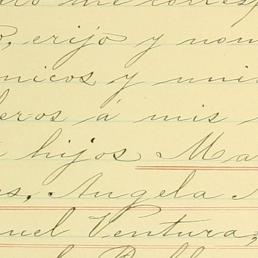 me corres
, erijo y nom
nicos y univ
eros á mis
hijos Ma
es, Angela
uel Ventura,